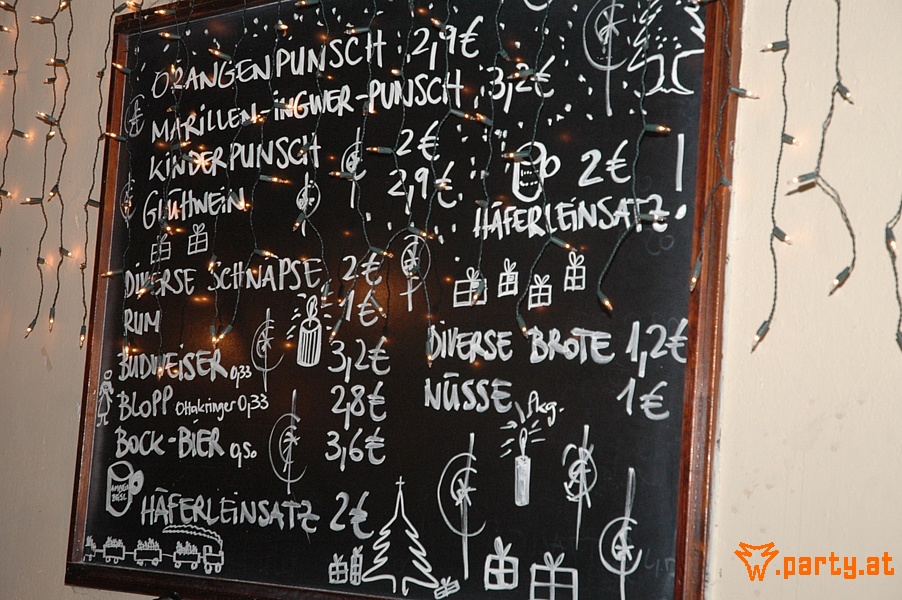 ORANGENPUNSCH 2,9€
MARILLEN-INGWER-PUNSCH 3,2€
KINDERPUNSCH 2€
GLÜHWEIN 2,9€
2€
HÄFERLEINSATZ
DIVERSE SCHNÄPSE 2€
RUM 1€
BUDWEISER 0,33 3,2€
BLOPP Ottakringer 0,33 2,8€
BOCK-BIER 0,5 3,6€
HÄFERLEINSATZ 2€
DIVERSE BROTE 1,2€
NÜSSE Pkg. 1€
w.party.at